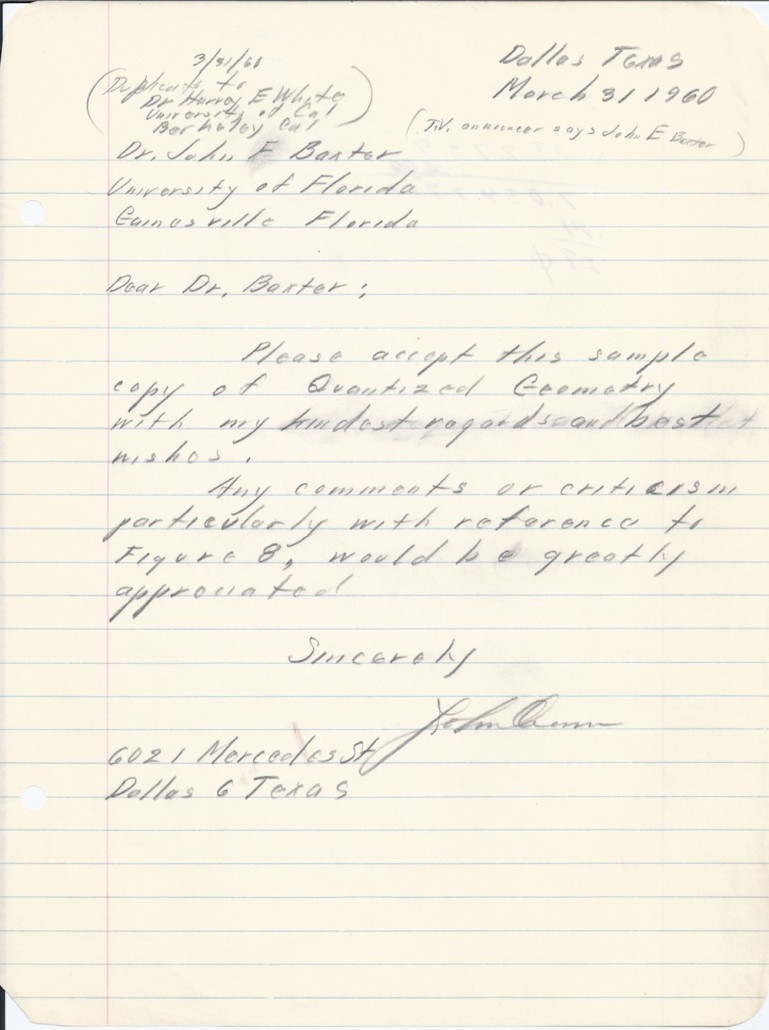 3/31/60
(Duplicate to
Dr Harvey E White
University of Cal
Berkeley Cal)
Dallas Texas
March 31 1960
(T.V. announcer says John E Baxter)
Dr. John F Baxter
University of Florida
Gainesville Florida
Dear Dr. Baxter:
Please accept this sample
copy of Quantized Geometry
with my kindest regards and best
wishes.
Any comments or criticism
particularly with reference to
Figure 8, would be greatly
appreciated
Sincerely
John
6021 Mercedes St
Dallas 6 Texas